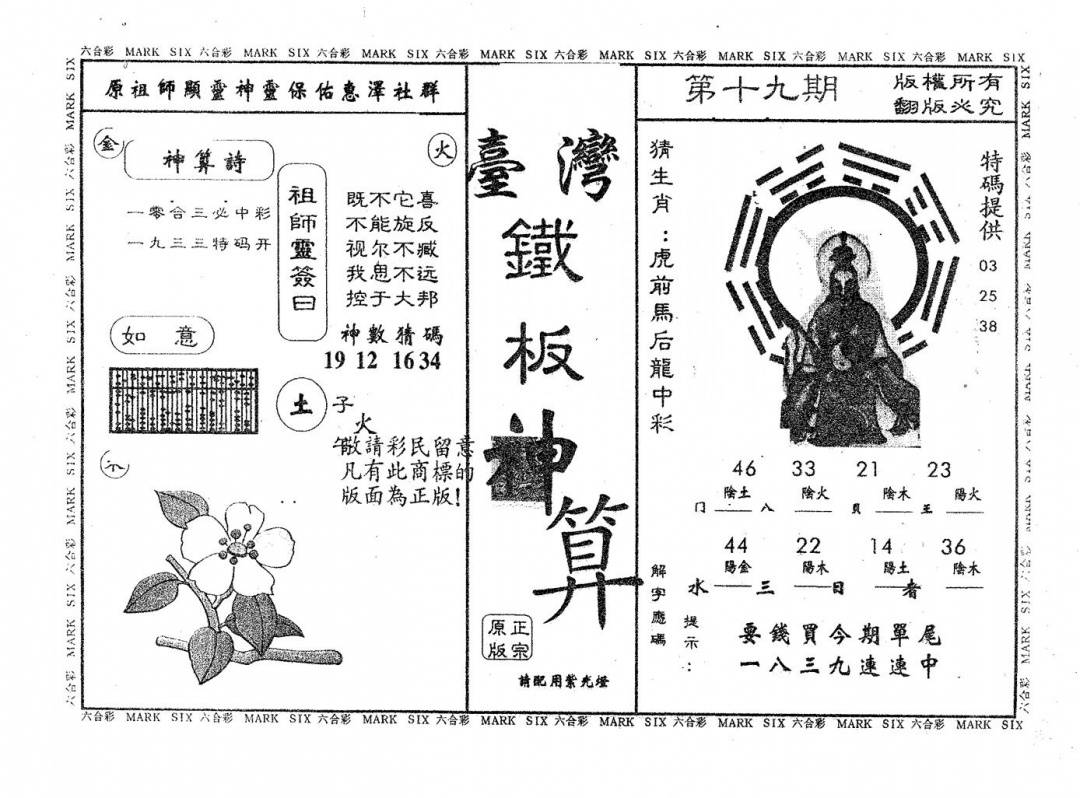 六合彩 MARK SIX 六合彩 MARK SIX 六合彩 MARK SIX 六合彩 MARK SIX 六合彩 MARK SIX 六合彩 MARK SIX 六合彩 MARK SIX 六合彩 MARK SIX
原祖師顯靈神靈保佑惠澤社群
金
火
神算詩
一零合三必中彩
一九三三特码开
祖師靈簽曰
既不它喜
不能旋反
视尔不臧
我思不远
控于大邦
神數猜碼
19 12 16 34
如意
土
子
火
午
敬請彩民留意
凡有此商標的
版面為正版!
臺灣
鐵
板
神
算
正宗
原版
請配用紫光燈
第十九期
版權所有
翻版必究
猜生肖:虎前馬后龍中彩
特碼提供
03
25
38
46 33 21 23
陰土 陰火 陰木 陽火
门 八 貝 王
44 22 14 36
陽金 陽木 陽土 陰木
水 三 日 者
解字應碼
提示:
要錢買今期單尾
一八三九連連中
六合彩 MARK SIX 六合彩 MARK SIX 六合彩 MARK SIX 六合彩 MARK SIX 六合彩 MARK SIX 六合彩 MARK SIX 六合彩 MARK SIX 六合彩 MARK SIX